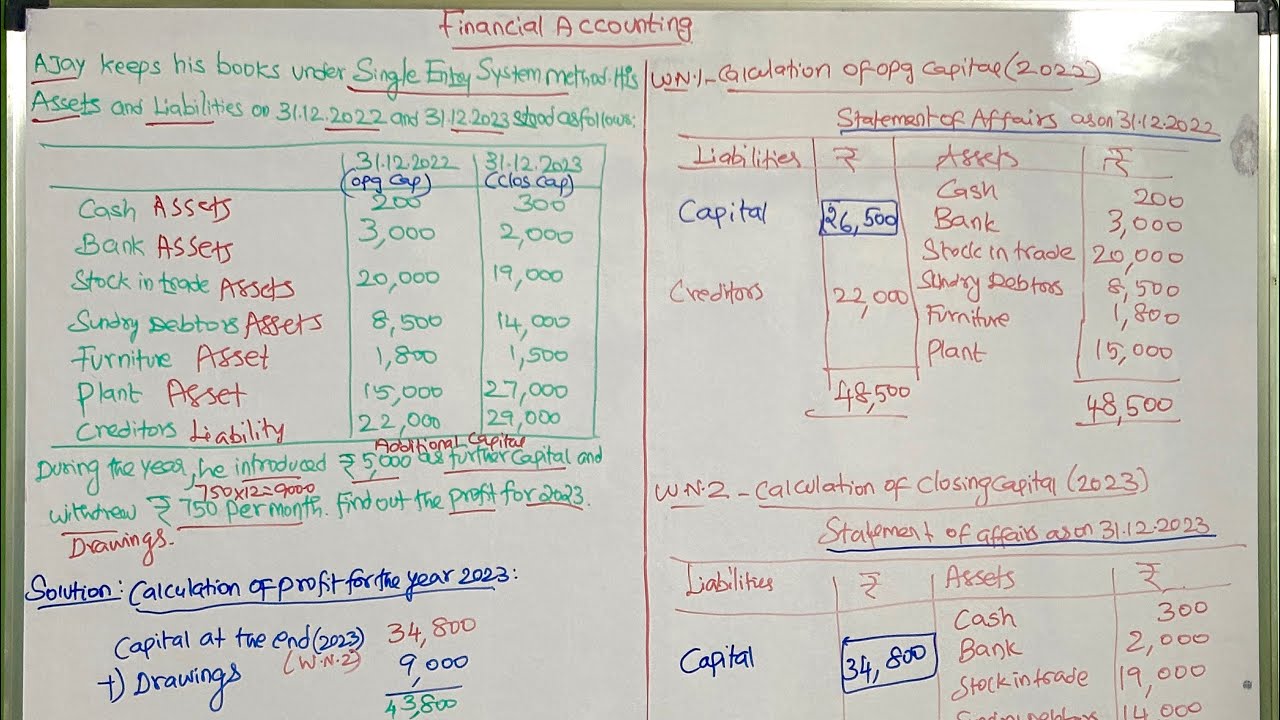 Financial Accounting
AJay keeps his books under Single Entry System method. His
Assets and Liabilities on 31.12.2022 and 31.12.2023 stood as follows:
31.12.2022 31.12.2023
(opg cap) (clos cap)
Cash Assets 200 300
Bank Assets 3,000 2,000
Stock in trade Assets 20,000 19,000
Sundry Debtors Assets 8,500 14,000
Furniture Asset 1,800 1,500
Plant Asset 15,000 27,000
Creditors Liability 22,000 29,000
Additional Capital
During the year, he introduced ₹ 5,000 as further capital and
750x12=9000
withdrew ₹ 750 per month. find out the profit for 2023.
Drawings.
Solution: Calculation of profit for the year 2023:
Capital at the end (2023) 34,800
(W.N.2)
+) Drawings 9,000
43,800
W.N.1 - Calculation of opg capital (2022)
Statement of Affairs as on 31.12.2022
Liabilities ₹ Assets ₹
Cash 200
Capital 26,500 Bank 3,000
Stock in trade 20,000
Creditors 22,000 Sundry Debtors 8,500
Furniture 1,800
Plant 15,000
48,500 48,500
W.N.2 - Calculation of Closing Capital (2023)
Statement of affairs as on 31.12.2023
Liabilities ₹ Assets ₹
Cash 300
Capital 34,800 Bank 2,000
Stock in trade 19,000
Sundry Debtors 14,000